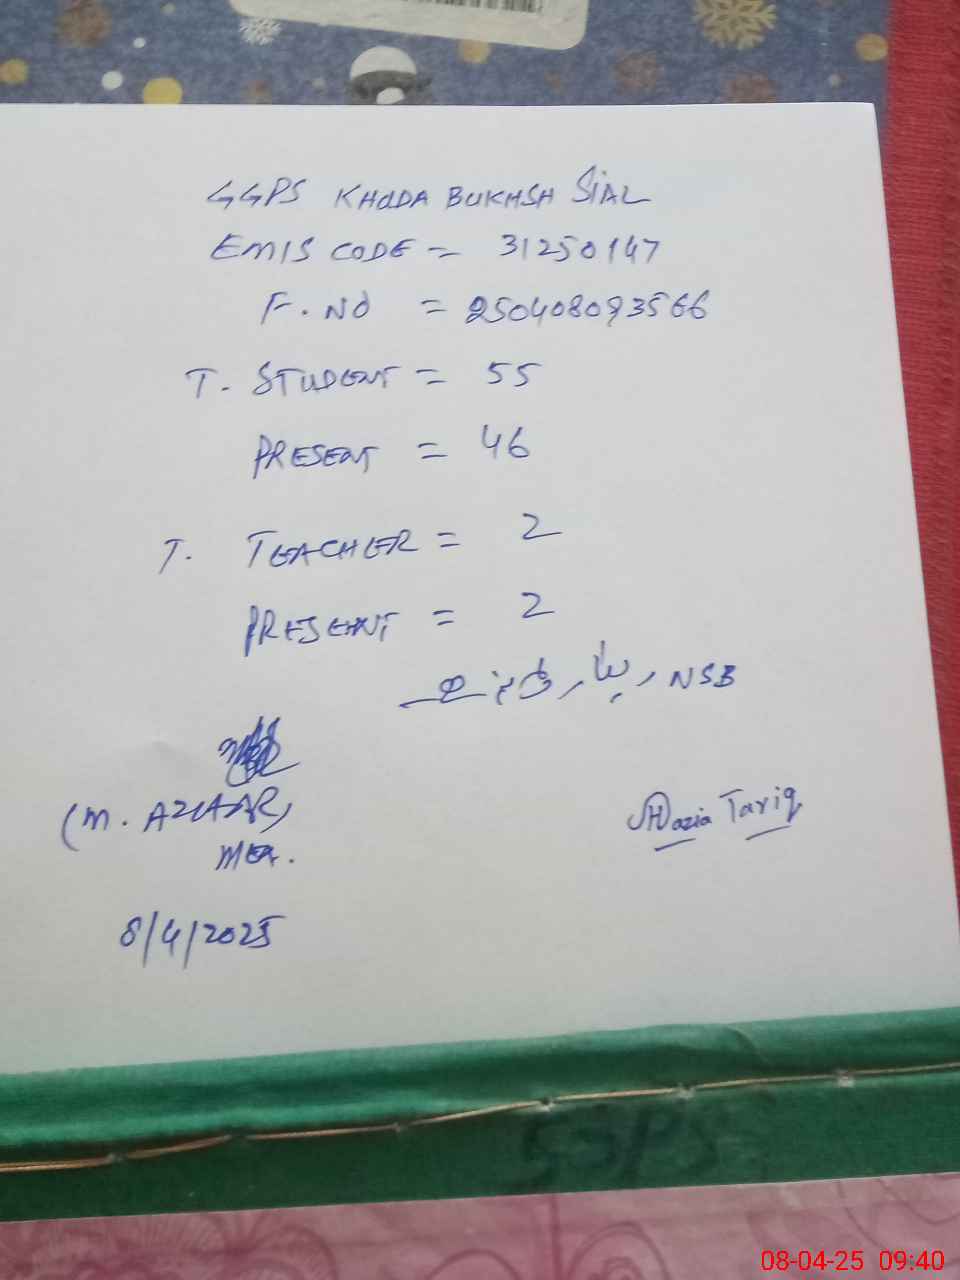 GGPS KHUDA BUKHSH SIAL
EMIS CODE = 31250147
F. NO = 250408093566
T. STUDENT = 55
PRESENT = 46
T. TEACHER = 2
PRESENT = 2
NSB
(M. AZHAR)
MEA.
Nazia Tariq
8/4/2025
GGPS
08-04-25 09:40